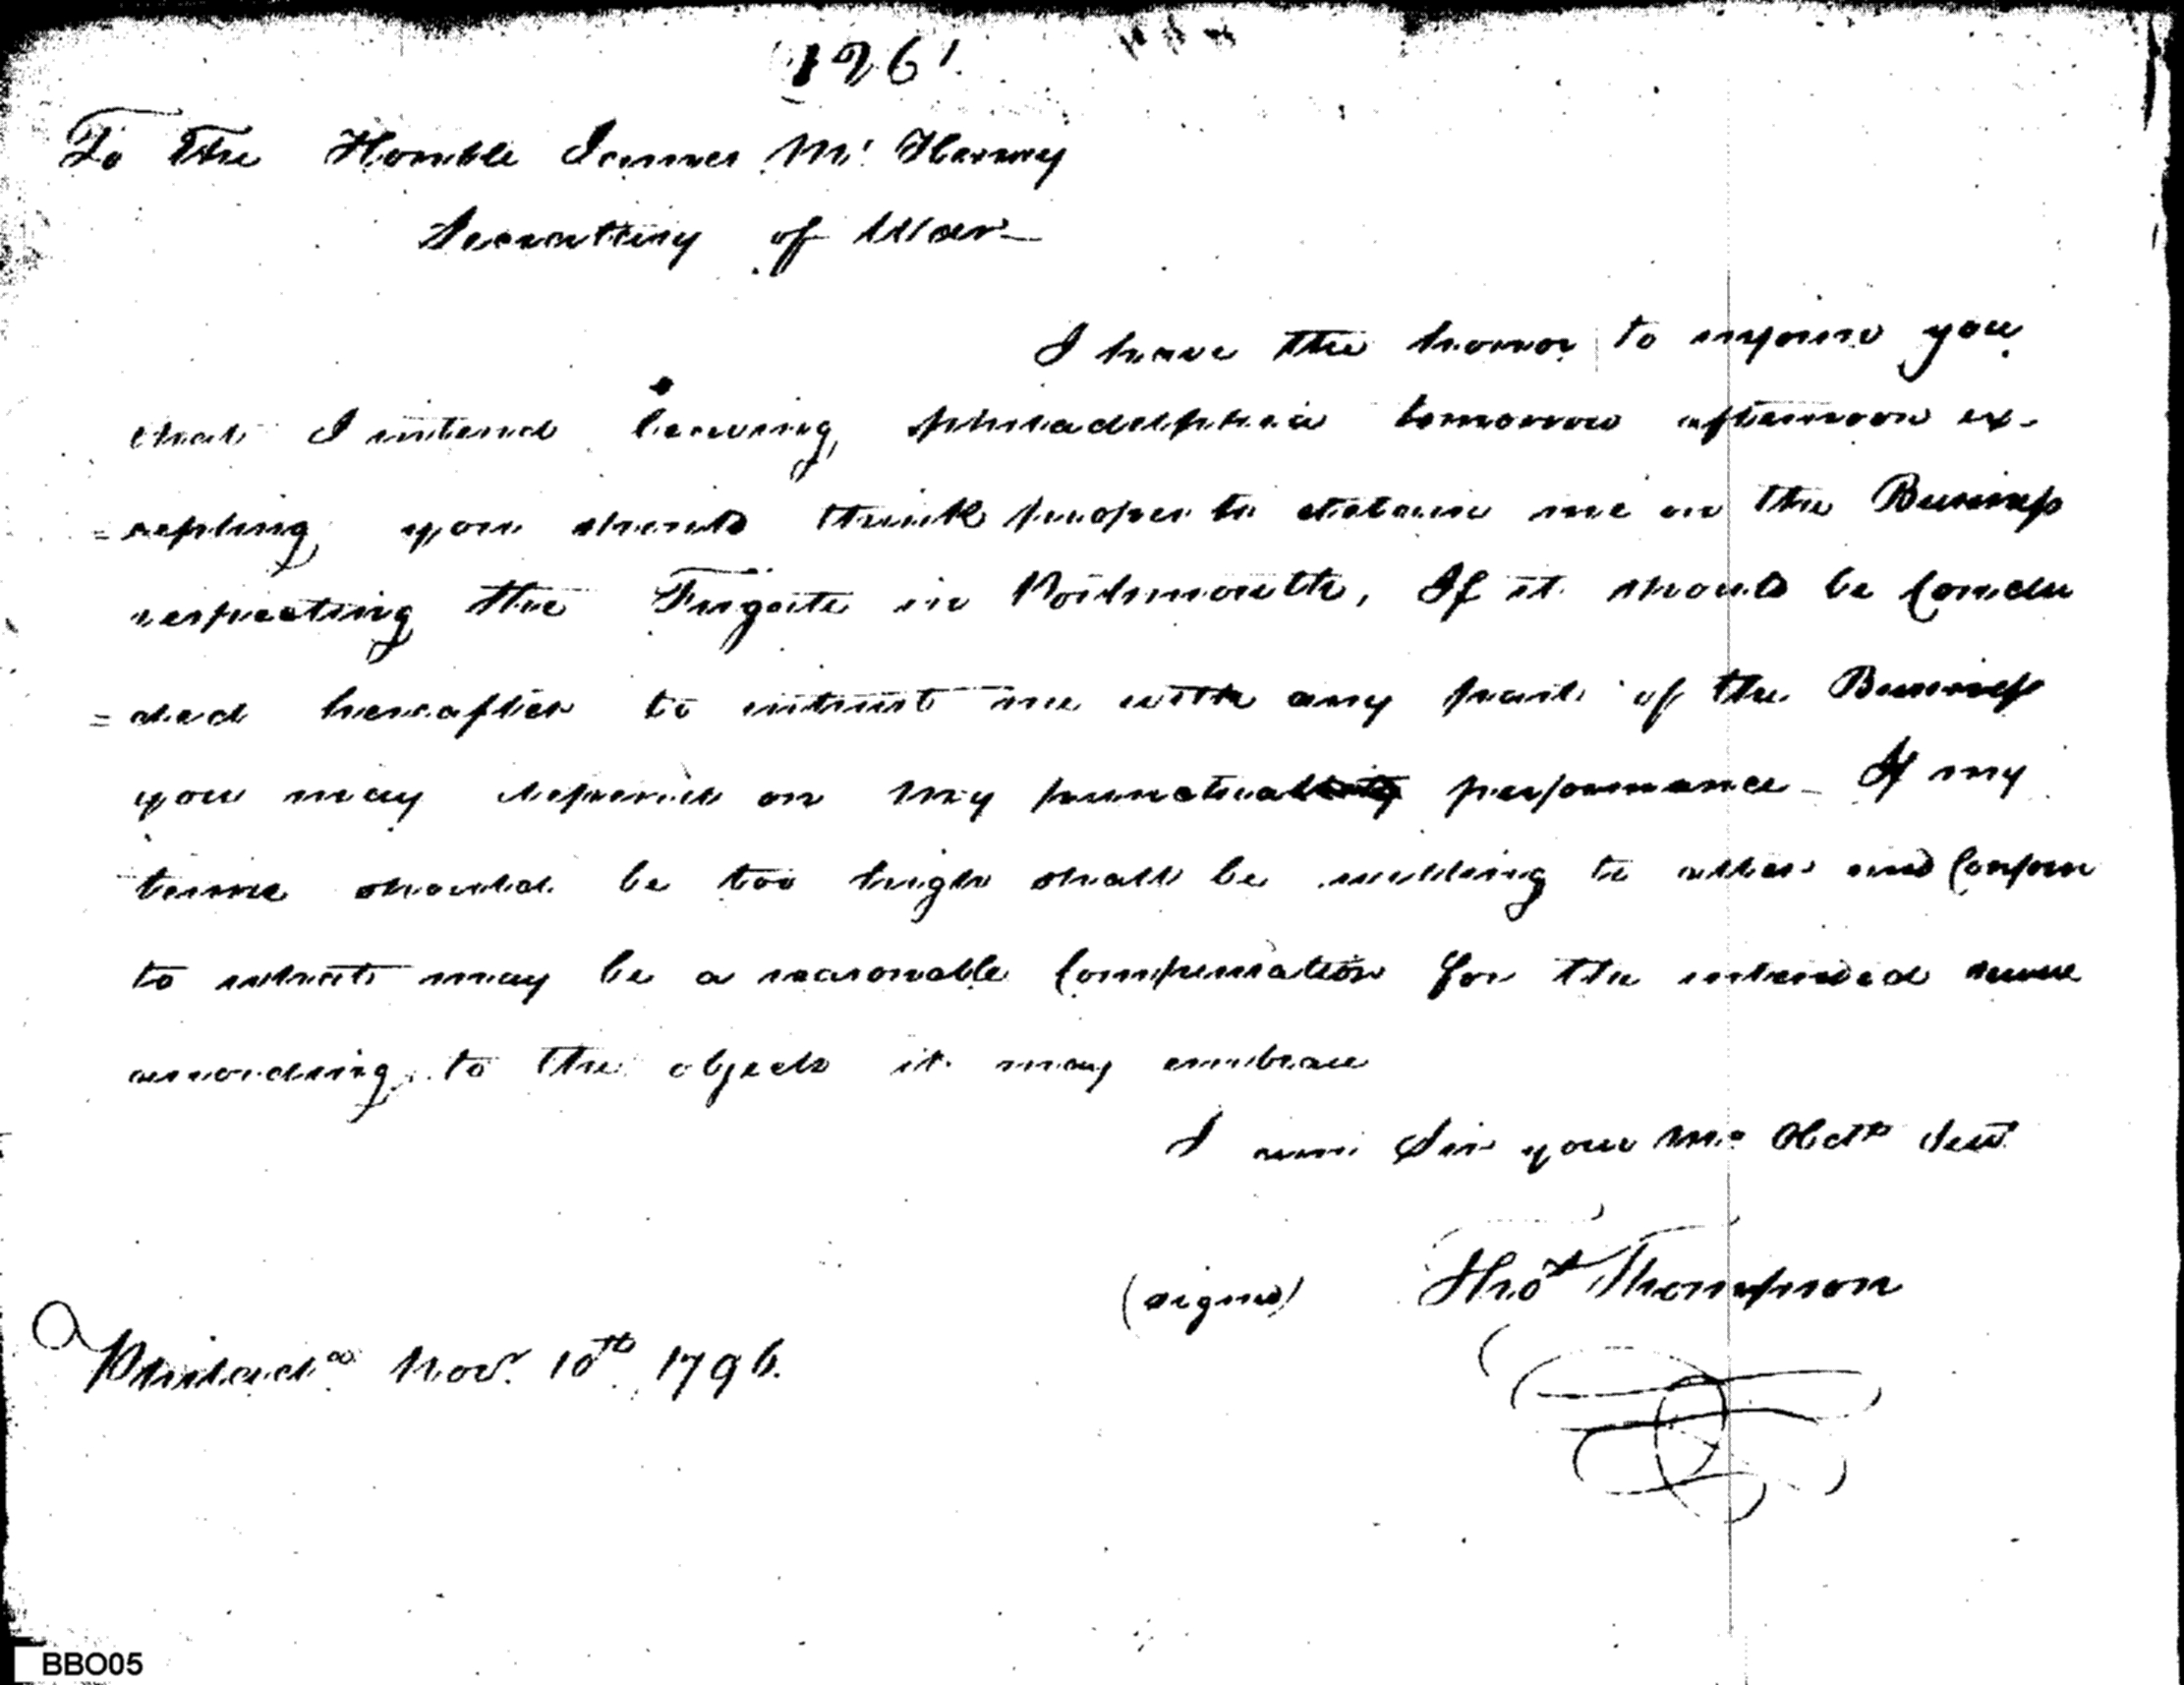 126
To the Honble James Mc Henry
Secretary of War
I have the honor to inform you
that I intend leaving philadelphia tomorrow afternoon ex-
=cepting you should think proper to detain me on the Business
respecting the Frigate in Portsmouth, If it should be Conclu
=ded hereafter to intrust me with any part of the Business
you may depend on my punctual performance - If my
terms should be too high shall be willing to alter and Conform
to what may be a reasonable Compensation for the intended service
according to the objects it may embrace
I am Sir your Mo Obdt Servt
(signed) Thos Thompson
Philada Novr 10th 1796.
BBO05